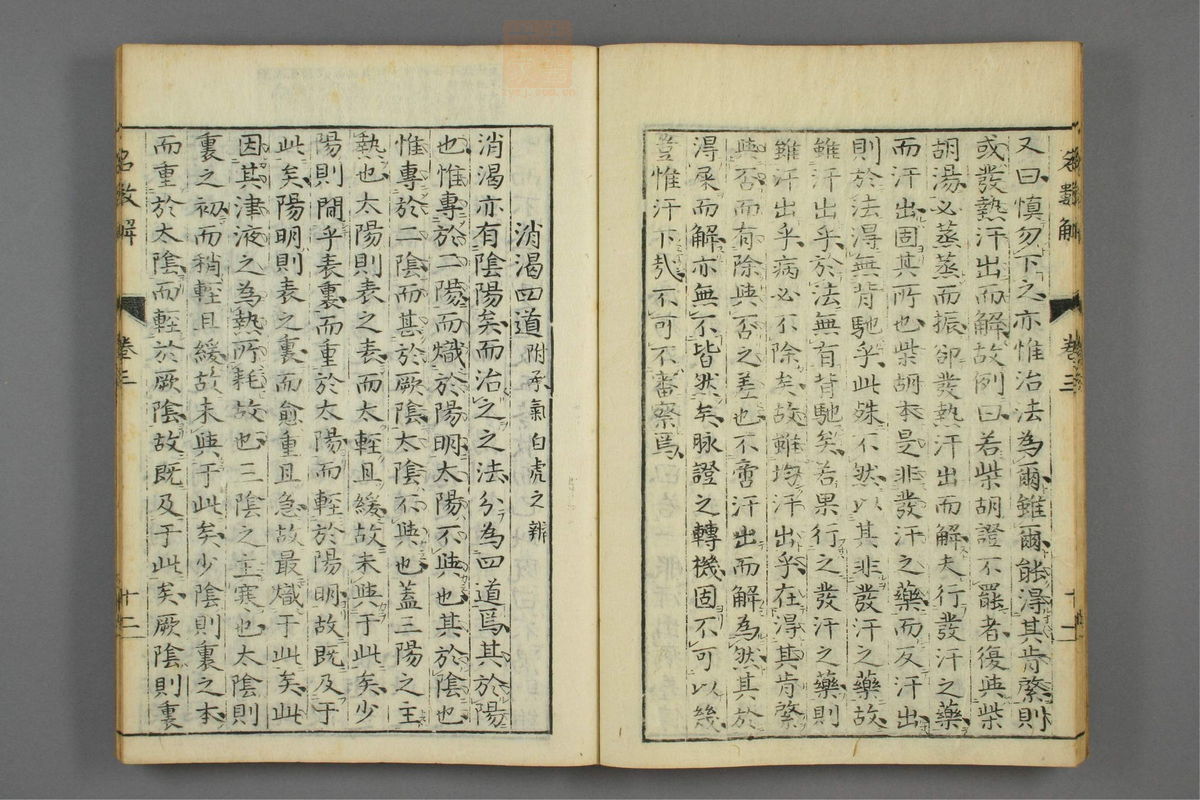 又曰慎勿下之亦惟治法為爾雖爾能得其肯綮則
或發熱汗出而解故例曰若柴胡證不罷者復與柴
胡湯必蒸蒸而振卻發熱汗出而解夫行發汗之藥
而汗出固其所也柴胡本是非發汗之藥而反汗出
則於法得無背馳乎此殊不然以其非發汗之藥故
雖汗出乎於法無有背馳矣若果行之發汗之藥則
雖汗出乎病必不除矣故雖均汗出乎在得其肯綮
與否而有除與否之差也不啻汗出而解為然其於
得屎而解亦無不皆然矣脉證之轉機固不可以幾
豈惟汗下哉不可不審察焉
名數解
卷三
消渴四道附承氣白虎之辨
消渴亦有陰陽矣而治之之法分為四道焉其於陽
也惟專於二陽而熾於陽明太陽不與也其於陰也
惟專於二陰而甚於厥陰太陰不與也蓋三陽之主
熱也太陽則表之表而大輕且緩故未與于此矣少
陽則間乎表裏而重於太陽而輕於陽明故既及于
此矣陽明則表之裏而愈重且急故最熾于此矣此
因其津液之為熱所耗故也三陰之主寒也太陰則
裏之初而稍輕且緩故未與于此矣少陰則裏之本
而重於太陰而輕於厥陰故既及于此矣厥陰則裏
名數解
卷三
十二